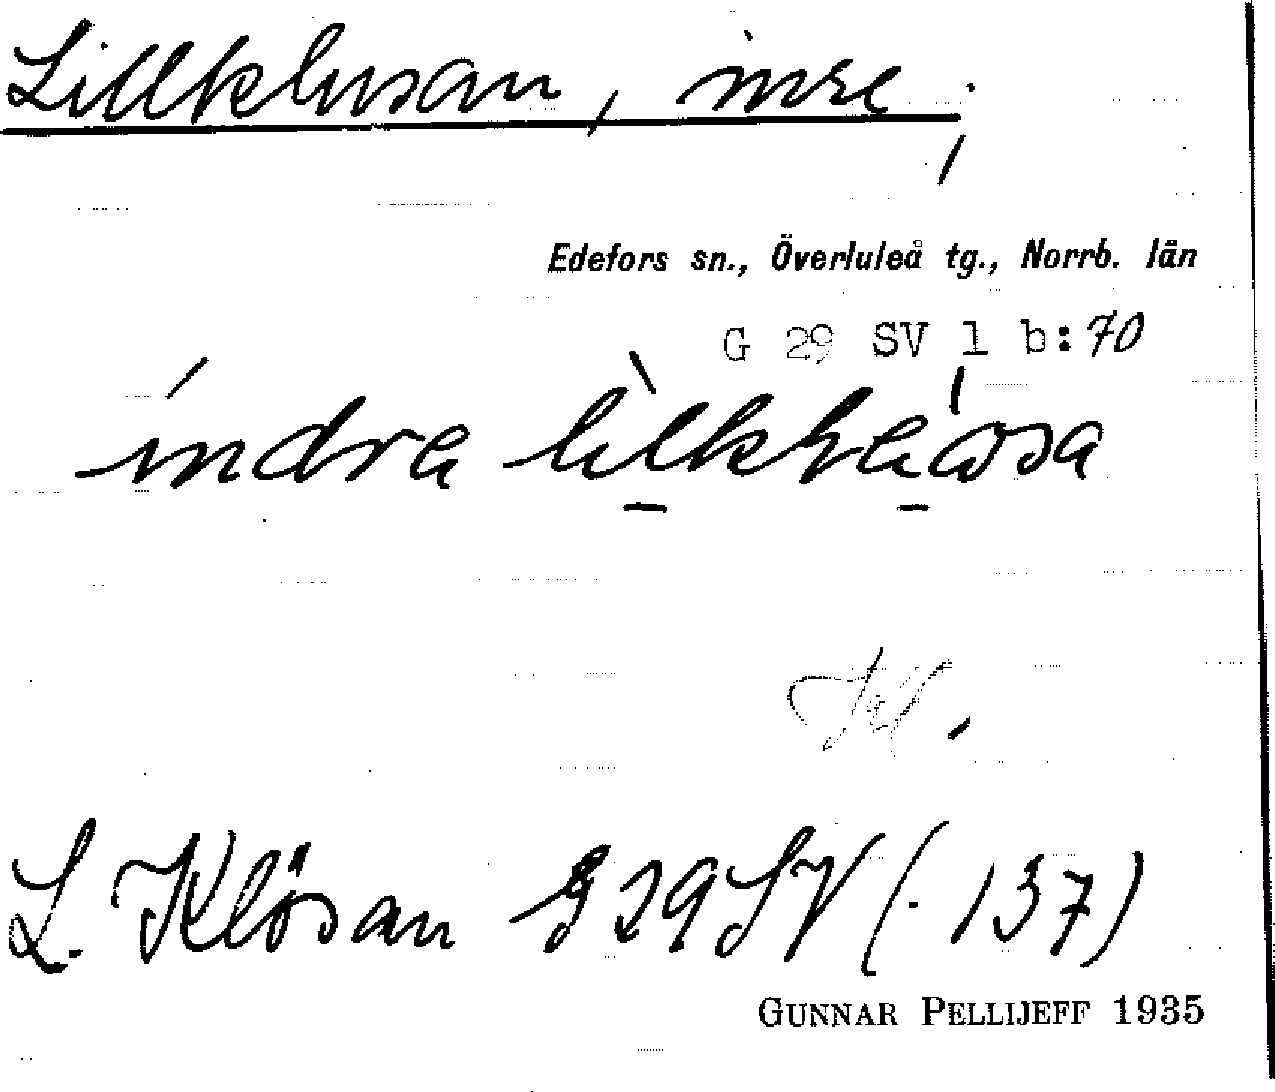 Lillklusan, inre
Edefors sn., Överluleå tg., Norrb. län
G 29 SV 1 b:70
indra
L. Klösan G 29 SV (. 137)
GUNNAR PELLIJEFF 1935